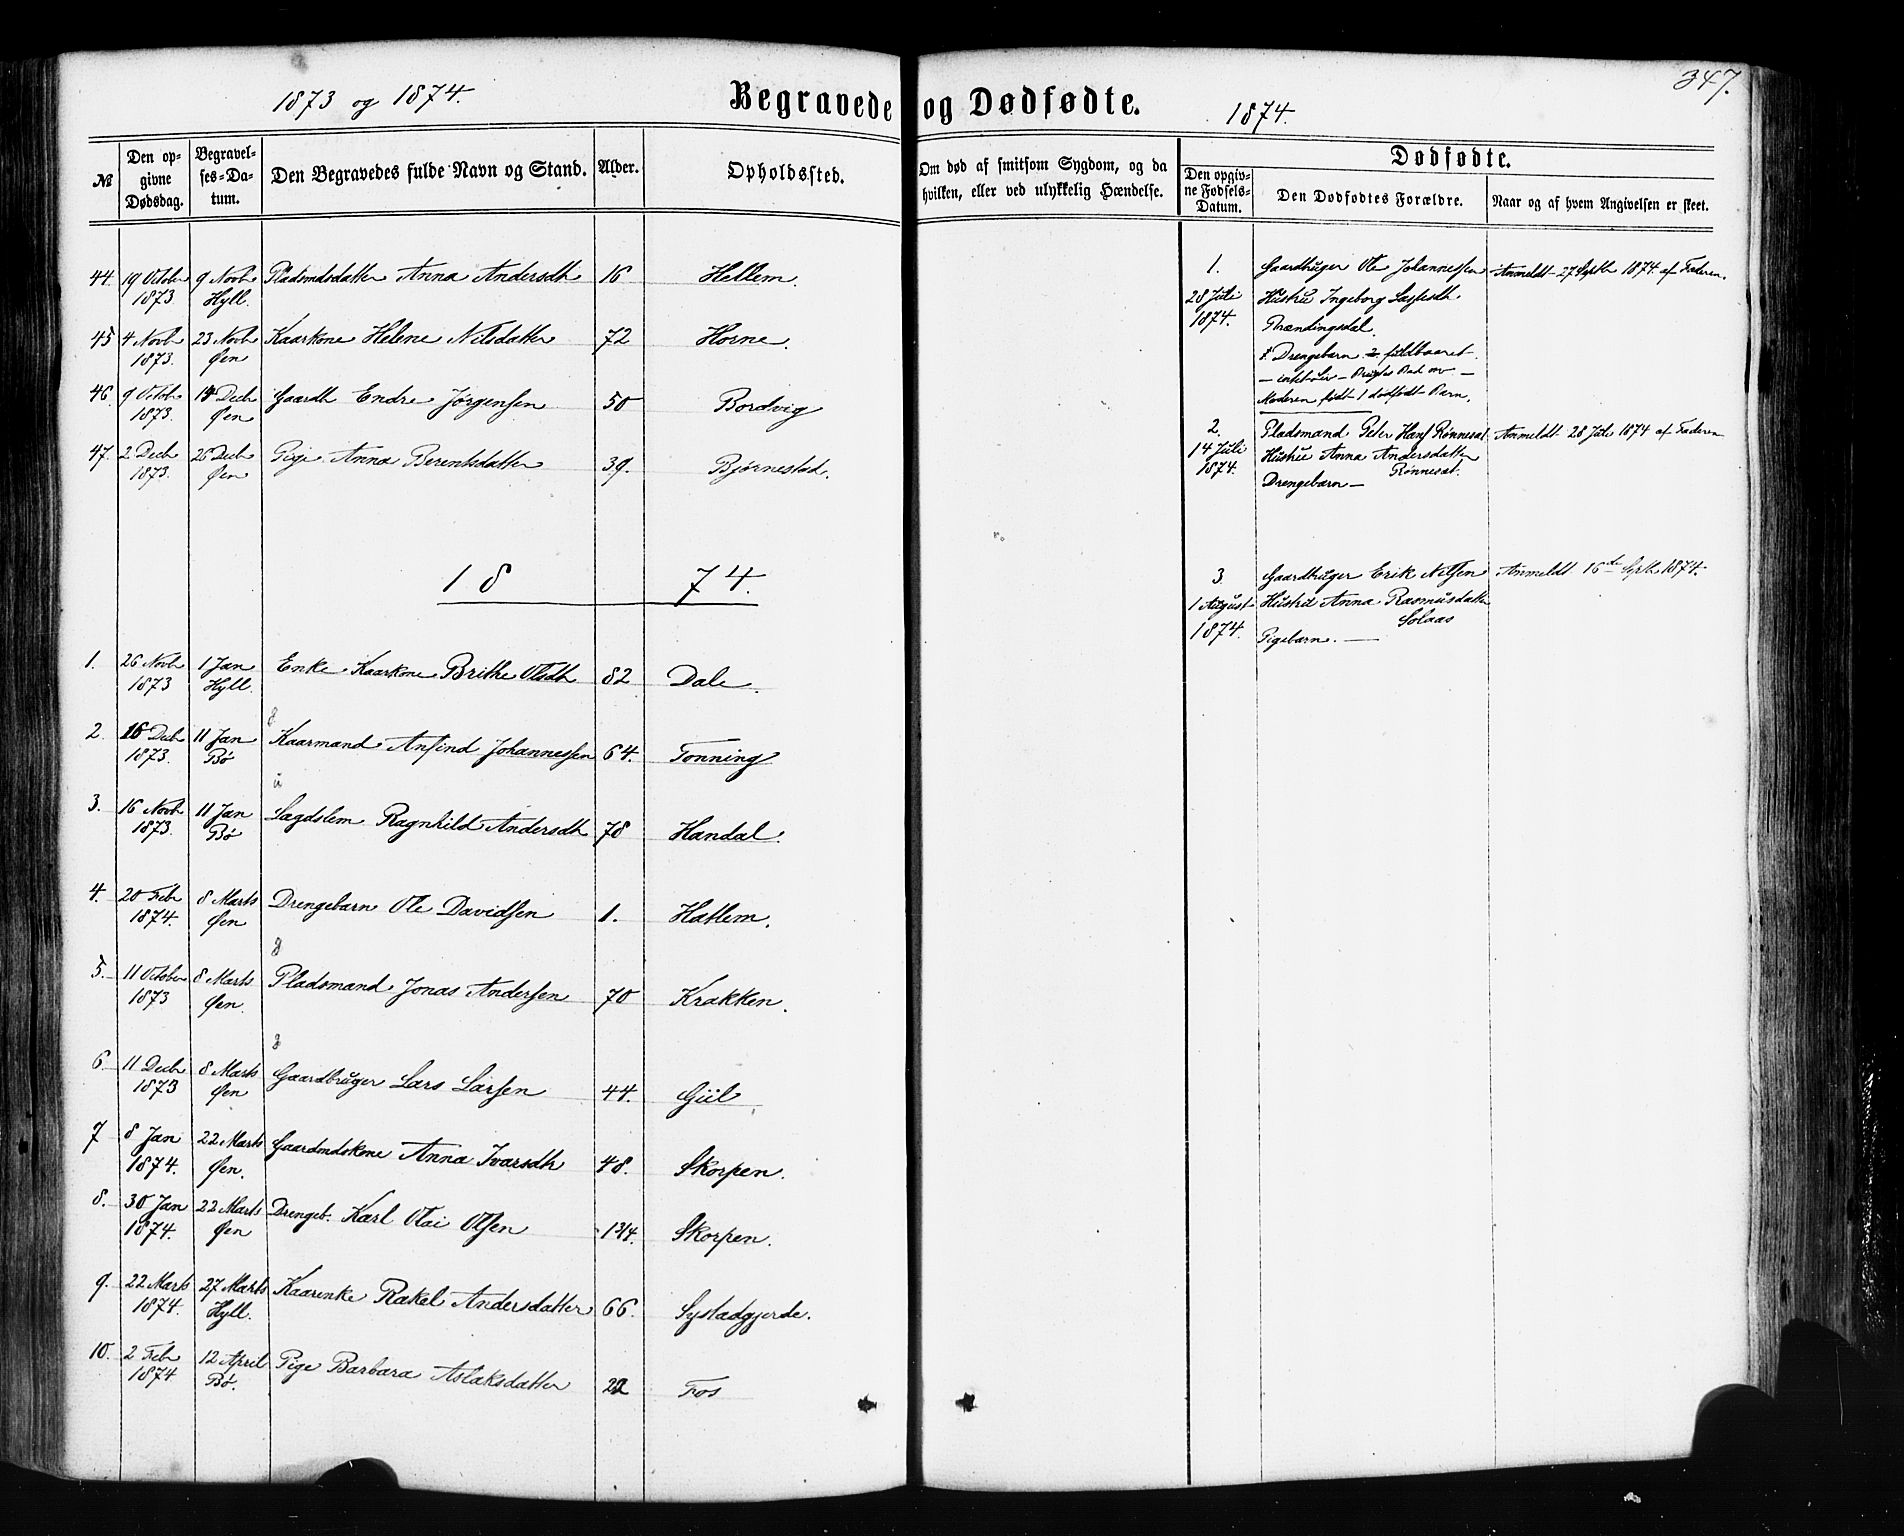 347.
1873 og 1874.
Begravede og Dødfødte.
1874.
№
Den opgivne Dødsdag.
Begravelses-Datum.
Den Begravedes fulde Navn og Stand.
Alder.
Opholdssted.
Om død af smitsom Sygdom, og da hvilken, eller ved ulykkelig Hændelse.
Dødfødte.
Den opgivne Fødsels-Datum.
Den Dødfødtes Forældre.
Naar og af hvem Angivelsen er skeet.
44. 19 October 9 Novb Pladsmdsdatter Anna Andersdtr 16 Hellem.
1873. Hyll.
45 4 Novb 23 Novb Kaarkone Helene Nilsdatter 72 Horne.
1873. Øen
46. 9 Octob Decb Gaardb Endre Jørgensen 50 Bordvig
1873. Øen
47. 2 Decb 26 Decb Pige Anna Berentsdatter 39. Bjørnestad.
1873. Øen
1874.
1. 26 Novb 1 Jan Enke Kaarkone Brithe Olsdtr 82 Dale.
1873 Hyll.
2. 16 Decb 11 Jan Kaarmand Anfind Johannessen 64. Tonning
1873. Bø
3. 16 Novb 11 Jan Lægdslem Ragnhild Andersdtr 78 Handal.
1873. Bø
4. 20 Feb 8 Marts Drengebarn Ole Davidsen 1. Hatlem.
1874. Øen
5. 11 October 8 Marts Pladsmand Jonas Andersen 70 Krakken.
1873 Øen.
6. 11 Decb 8 Marts Gaardbruger Lars Larsen 44. Giil
1873 Øen
7 8 Jan 22 Marts Gaardmdskone Anna Ivarsdtr 48. Skorpen.
1874. Øen.
8. 30 Jan 22 Marts Drengeb. Karl Olai Olsen 1 3/4. Skorpen.
1874. Øen
9. 22 Marts 27 Marts Kaarenke Rakel Andersdatter 66. Systadgjerde.
1874. Hyll.
10. 2 Feb 12 April Pige Barbara Aslaksdatter 22 Fos
1874 Bø.
1. Gaardbruger Ole Johannessen Anmeldt 27 Septb 1874 af Faderen.
28 Juli Hustru Ingeborg
1874. Thrændingsdal.
Drengebarn fuldbaaret
Moderen født 1 dødfødt Barn.
2. Pladsmand Peter Hans Rønnesæt Anmeldt 28 Juli 1874 af Faderen
14 Juli Hustru Anna Andersdatter
1874. Rønnesæt.
Drengebarn —
3. Gaardbruger Erik Nilsen Anmeldt 16de Septb 1874.
1 August Hustru Anna Rasmusdatter
Solaas
1874. Pigebarn. —